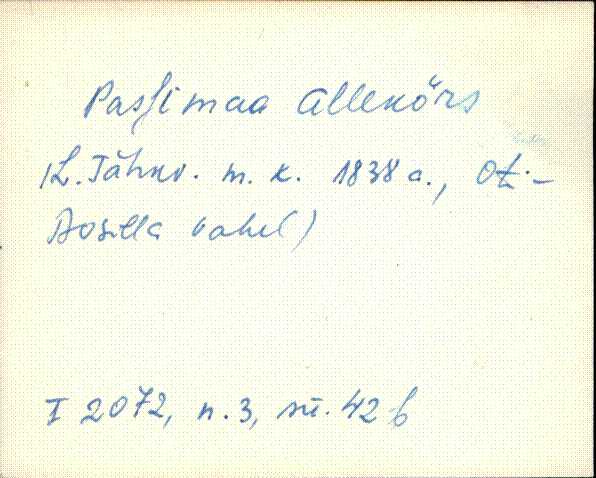 Passimaa Allekõrs
(L. Tähkv. m. k. 1838 a., Ot.-
Aosilla vahel)
I 2072, n. 3, nr. 42 b